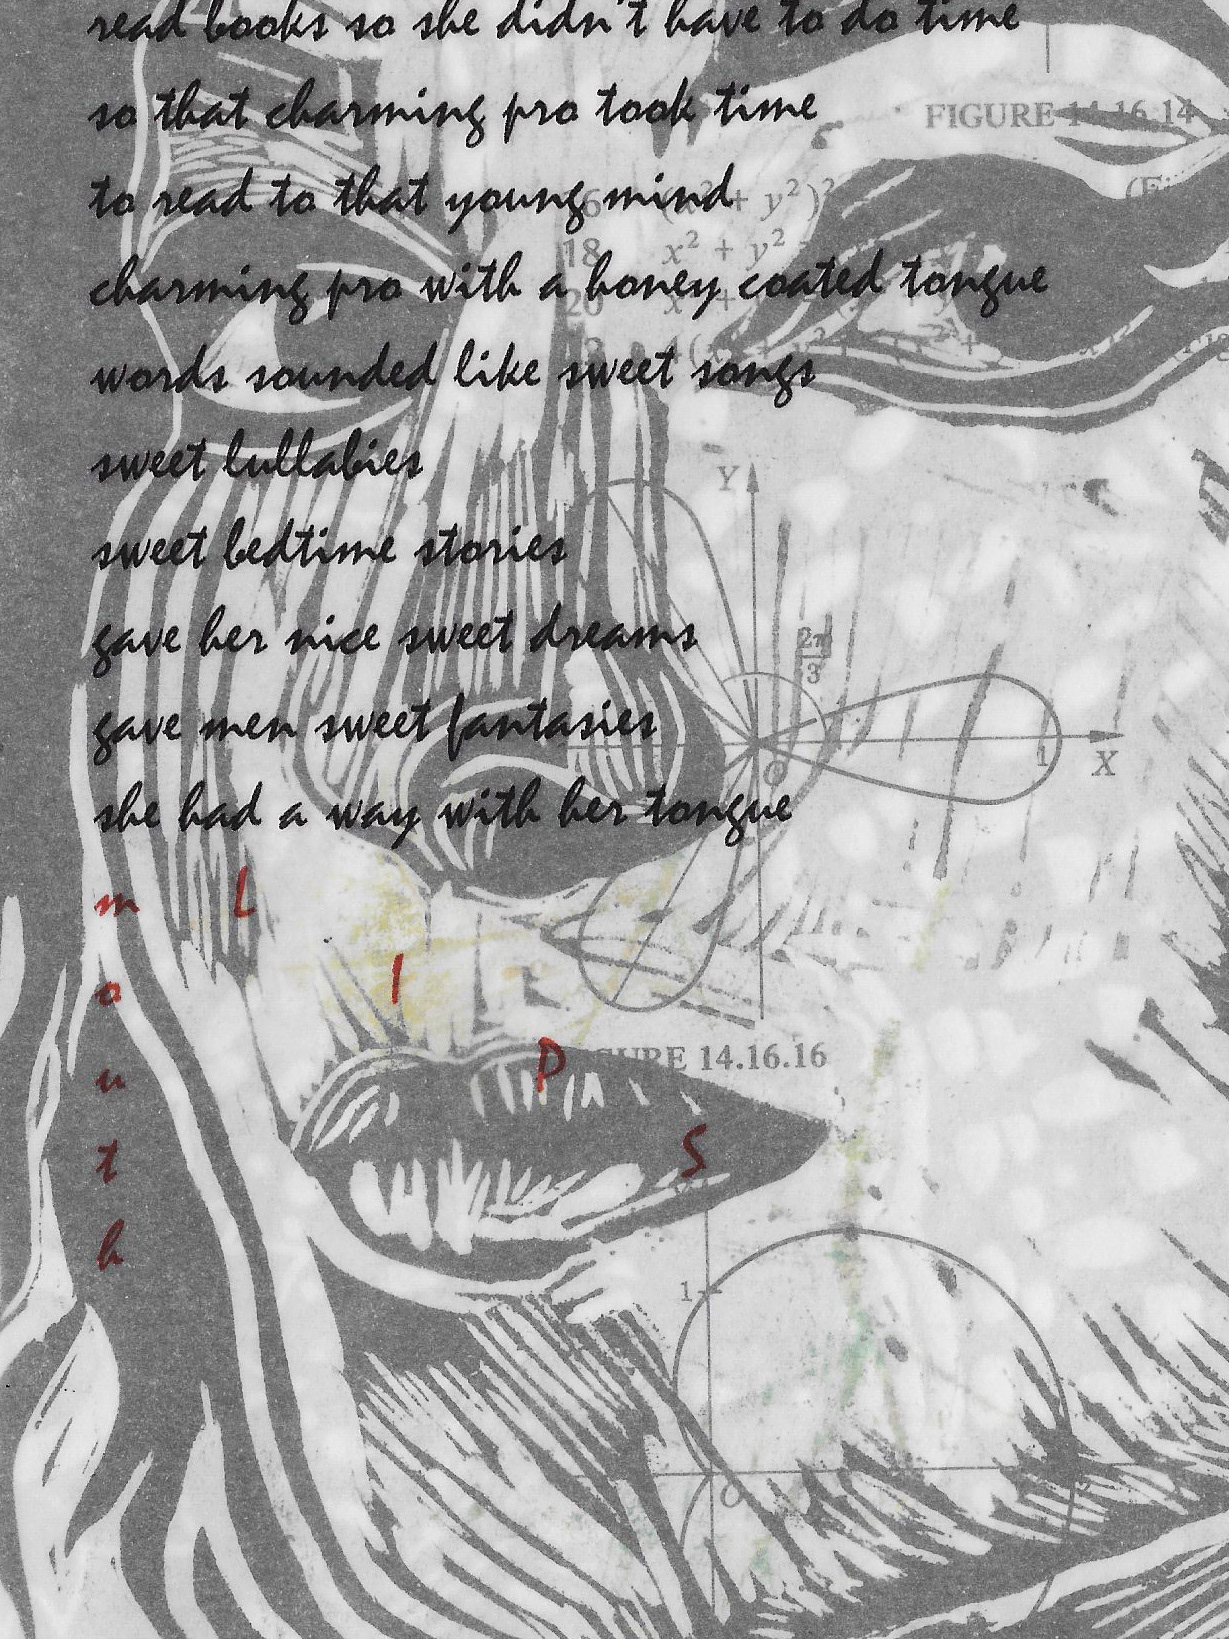 read books so she didn't have to do time
so that charming pro took time
to read to that young mind
charming pro with a honey coated tongue
words sounded like sweet songs
sweet lullabies
sweet bedtime stories
gave her nice sweet dreams
gave men sweet fantasies
she had a way with her tongue
m L
o I
u P
t S
h
FIGURE 14.16.14
18 x² + y²
Y
2π
3
1
X
O
14.16.16
1
O